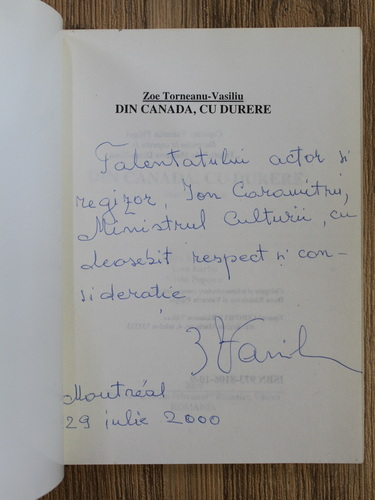 Zoe Torneanu-Vasiliu
DIN CANADA, CU DURERE
Talentatului actor și
regizor, Ion Caramitru,
Ministrul Culturii, cu
deosebit respect și con-
siderație
ZVasil
Montréal
29 iulie 2000